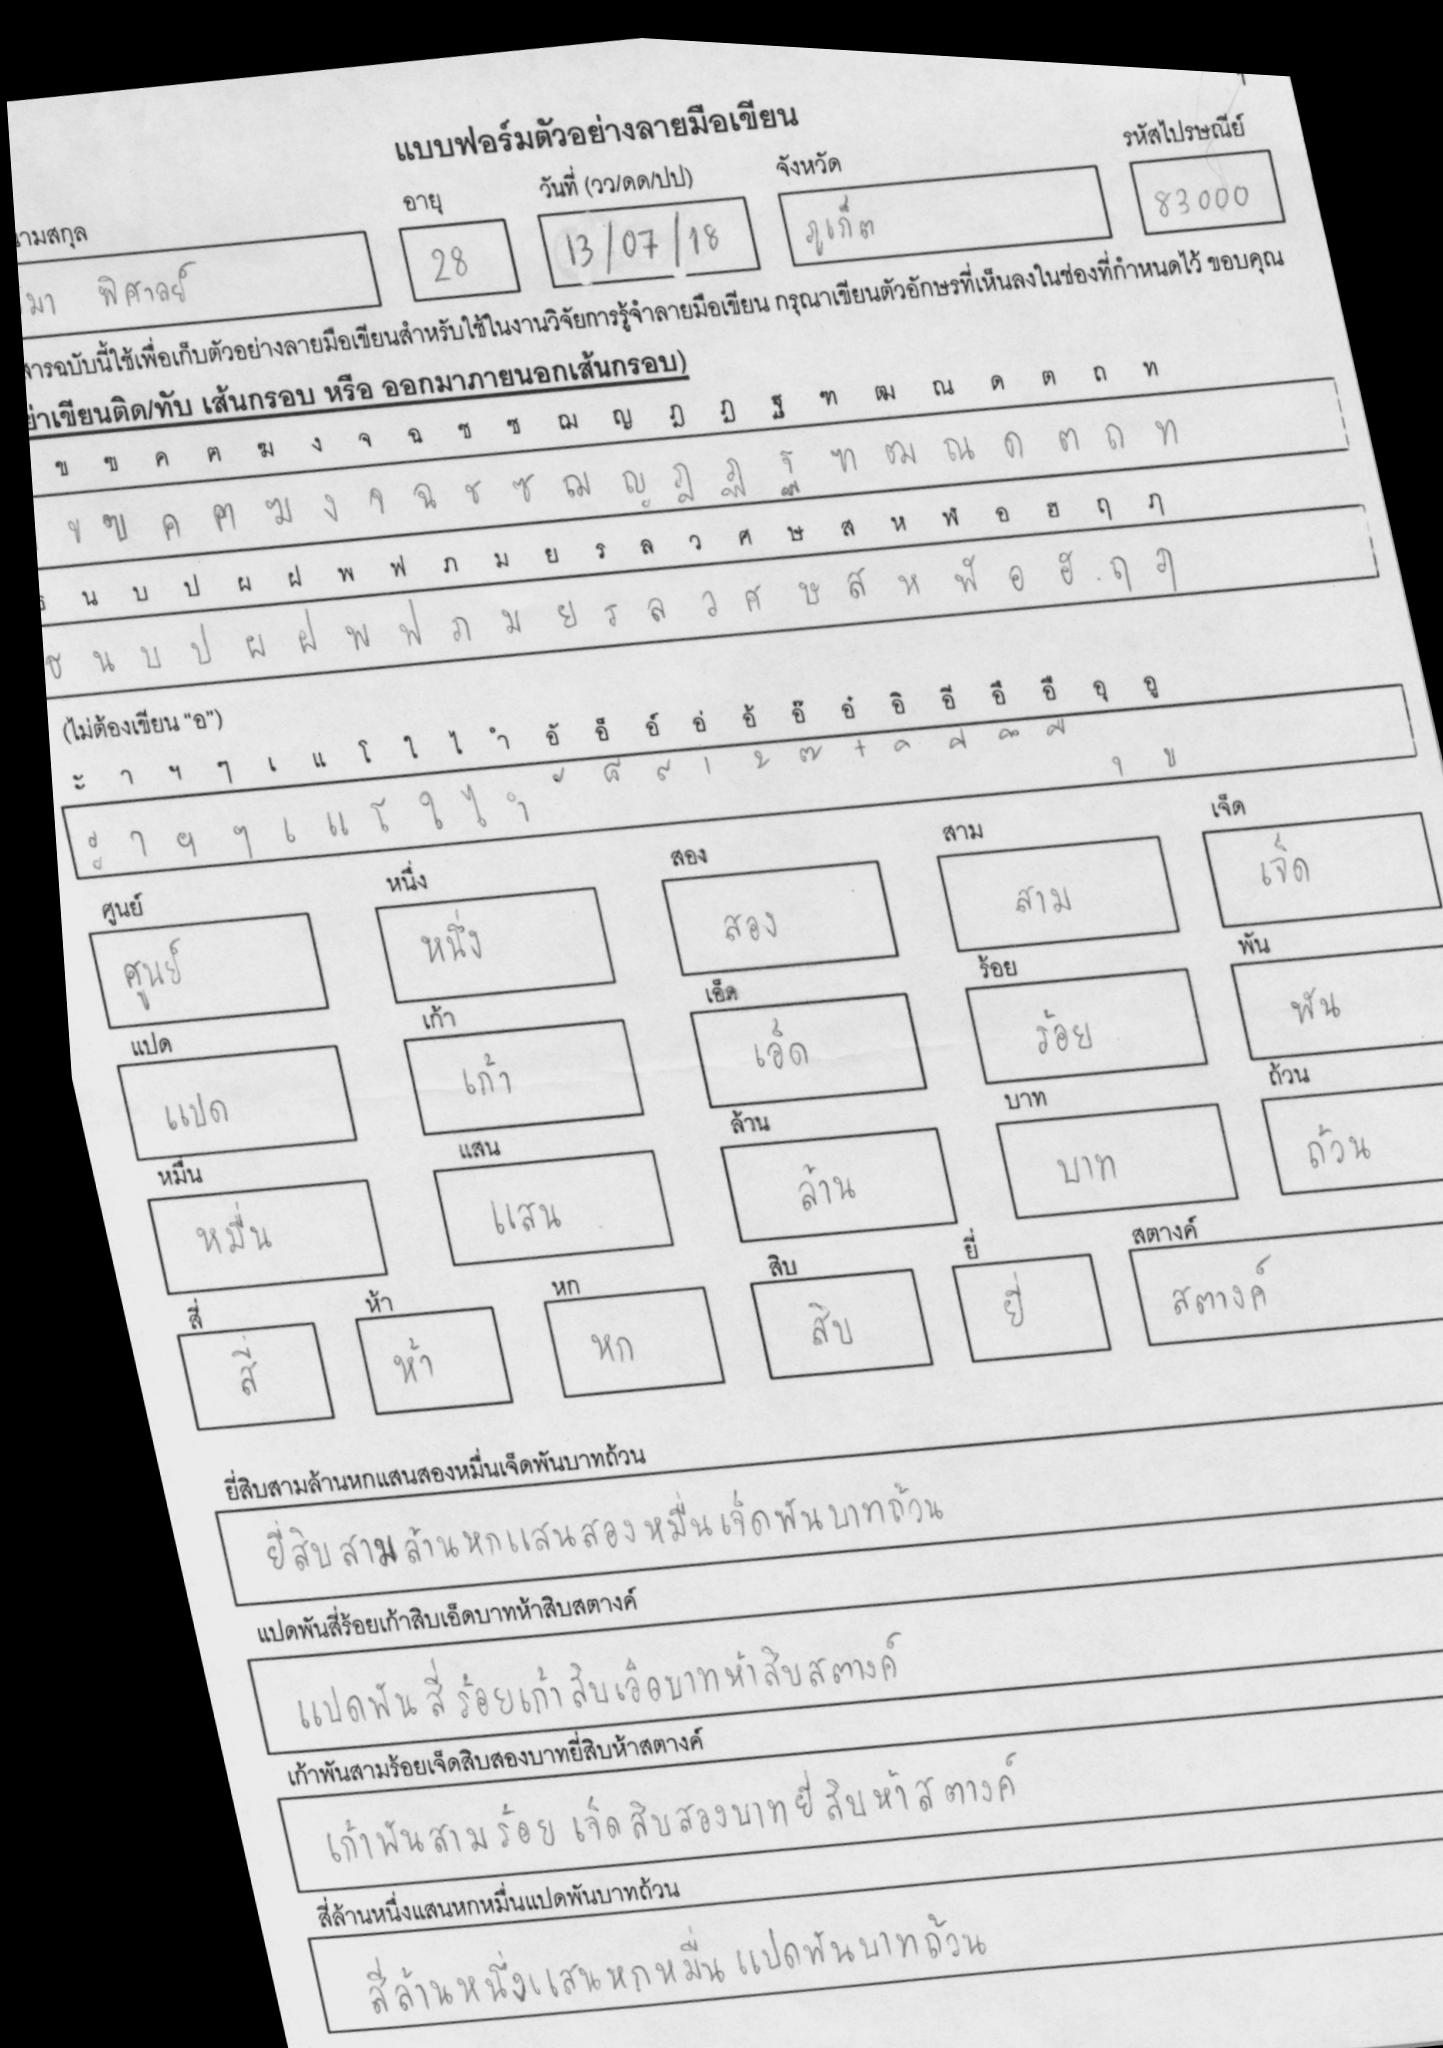 แบบฟอร์มตัวอย่างลายมือเขียน
นามสกุล อายุ วันที่ (วว/ดด/ปป) จังหวัด รหัสไปรษณีย์
มา พิศาลย์ 28 13/07/18 ภูเก็ต 83000
สารฉบับนี้ใช้เพื่อเก็บตัวอย่างลายมือเขียนสำหรับใช้ในงานวิจัยการรู้จำลายมือเขียน กรุณาเขียนตัวอักษรที่เห็นลงในช่องที่กำหนดไว้ ขอบคุณ
ย่าเขียนติด/ทับ เส้นกรอบ หรือ ออกมาภายนอกเส้นกรอบ)
ข ฃ ค ฅ ฆ ง จ ฉ ช ซ ฌ ญ ฎ ฏ ฐ ฑ ฒ ณ ด ต ถ ท
ข ฃ ค ฅ ฆ ง จ ฉ ช ซ ฌ ญ ฎ ฏ ฐ ฑ ฒ ณ ด ต ถ ท
ธ น บ ป ผ ฝ พ ฟ ภ ม ย ร ล ว ศ ษ ส ห ฬ อ ฮ ฤ ฦ
ธ น บ ป ผ ฝ พ ฟ ภ ม ย ร ล ว ศ ษ ส ห ฬ อ ฮ ฤ ฦ
(ไม่ต้องเขียน "อ")
ะ า ฯ ๆ เ แ โ ใ ไ ำ อั อ็ อ์ อ่ อ้ อ๊ อ๋ อิ อี อึ อื อุ อู
ะ า ฯ ๆ เ แ โ ใ ไ ำ ั ็ ์ ่ ้ ๊ ๋ ิ ี ึ ื ุ ู
ศูนย์ หนึ่ง สอง สาม เจ็ด
ศูนย์ หนึ่ง สอง สาม เจ็ด
แปด เก้า เอ็ด ร้อย พัน
แปด เก้า เอ็ด ร้อย พัน
หมื่น แสน ล้าน บาท ถ้วน
หมื่น แสน ล้าน บาท ถ้วน
สี่ ห้า หก สิบ ยี่ สตางค์
สี่ ห้า หก สิบ ยี่ สตางค์
ยี่สิบสามล้านหกแสนสองหมื่นเจ็ดพันบาทถ้วน
ยี่สิบสามล้านหกแสนสองหมื่นเจ็ดพันบาทถ้วน
แปดพันสี่ร้อยเก้าสิบเอ็ดบาทห้าสิบสตางค์
แปดพันสี่ร้อยเก้าสิบเอ็ดบาทห้าสิบสตางค์
เก้าพันสามร้อยเจ็ดสิบสองบาทยี่สิบห้าสตางค์
เก้าพันสามร้อย เจ็ดสิบสองบาทยี่สิบห้าสตางค์
สี่ล้านหนึ่งแสนหกหมื่นแปดพันบาทถ้วน
สี่ล้านหนึ่งแสนหกหมื่น แปดพันบาทถ้วน